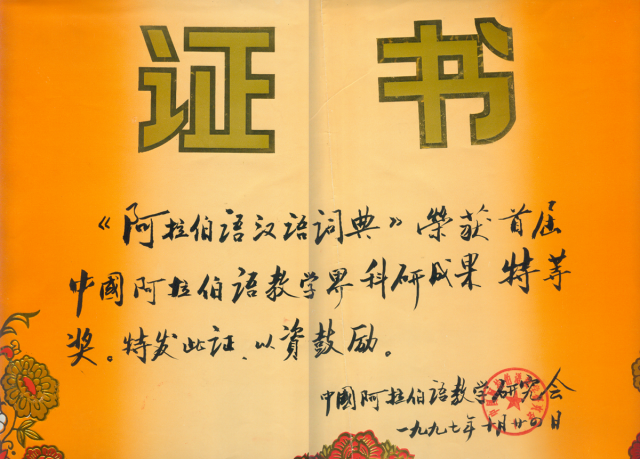 证书
《阿拉伯语汉语词典》榮获首届
中國阿拉伯语教学界科研成果特等
奖。特发此证,以资鼓励。
中國阿拉伯语教学研究会
一九九七年十月廿四日